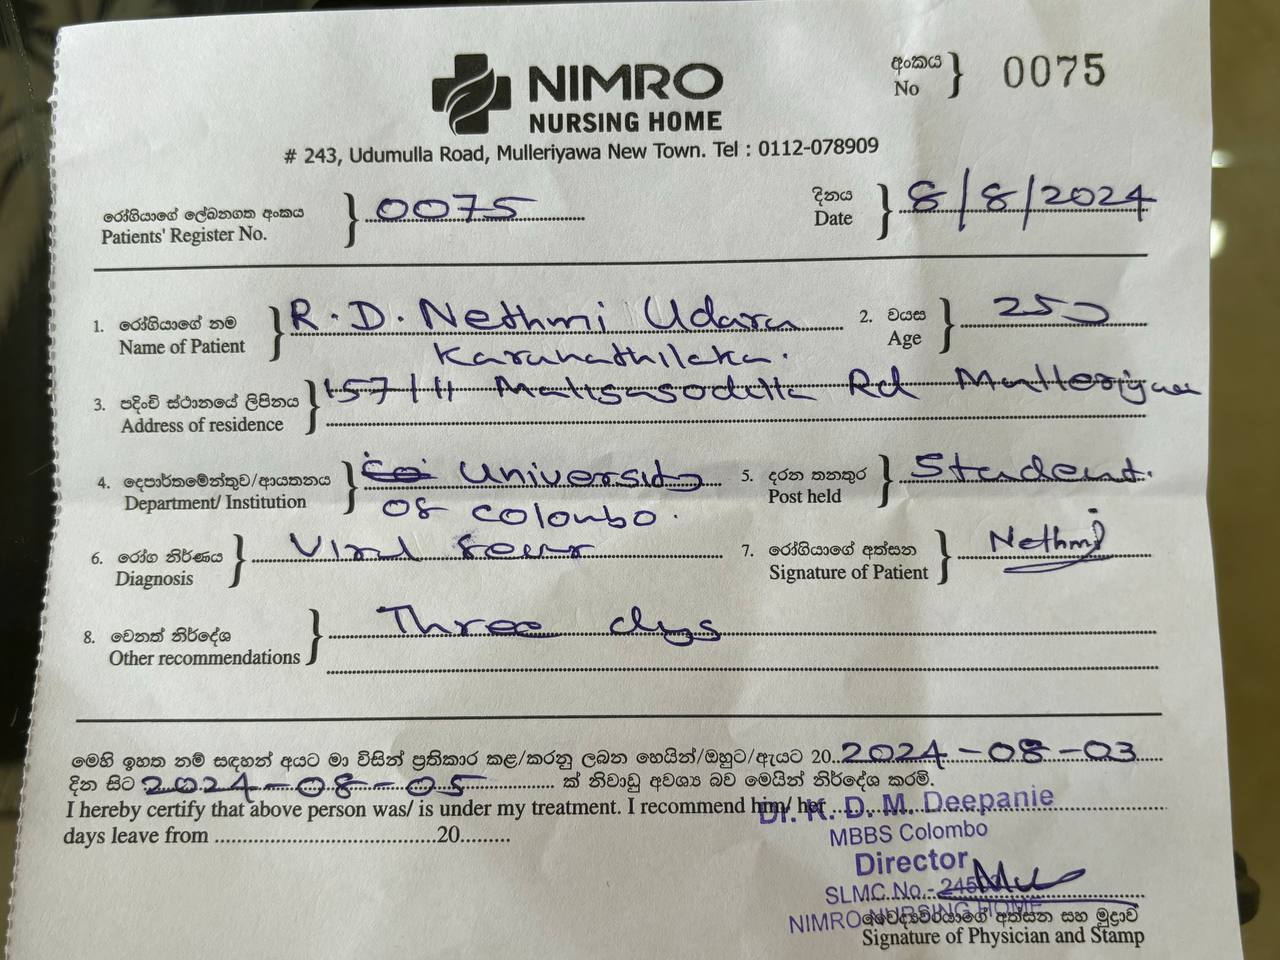 NIMRO
NURSING HOME
අංකය
No } 0075
# 243, Udumulla Road, Mulleriyawa New Town. Tel : 0112-078909
රෝගියාගේ ලේඛනගත අංකය
Patients' Register No. } 0075
දිනය
Date } 8/8/2024
1. රෝගියාගේ නම
Name of Patient } R. D. Nethmi Udara
Karunathilaka.
2. වයස
Age } 25
3. පදිංචි ස්ථානයේ ලිපිනය
Address of residence } 157/H Rd
4. දෙපාර්තමේන්තුව/ආයතනය
Department/ Institution } University
of Colombo.
5. දරන තනතුර
Post held } Student.
6. රෝග නිර්ණය
Diagnosis } Viral fever
7. රෝගියාගේ අත්සන
Signature of Patient } Nethmi
8. වෙනත් නිර්දේශ
Other recommendations } Three dys
මෙහි ඉහත නම් සඳහන් අයට මා විසින් ප්‍රතිකාර කළ/කරනු ලබන හෙයින්/ඔහුට/ඇයට 20..2024-08-03
දින සිට 2024-08-05 ක් නිවාඩු අවශ්‍ය බව මෙයින් නිර්දේශ කරමි.
I hereby certify that above person was/ is under my treatment. I recommend him/ her
days leave from ........................................20.........
Dr. K. D. M. Deepanie
MBBS Colombo
Director
SLMC.No.-
NIMRO NURSING HOME
වෛද්‍යවරයාගේ අත්සන සහ මුද්‍රාව
Signature of Physician and Stamp